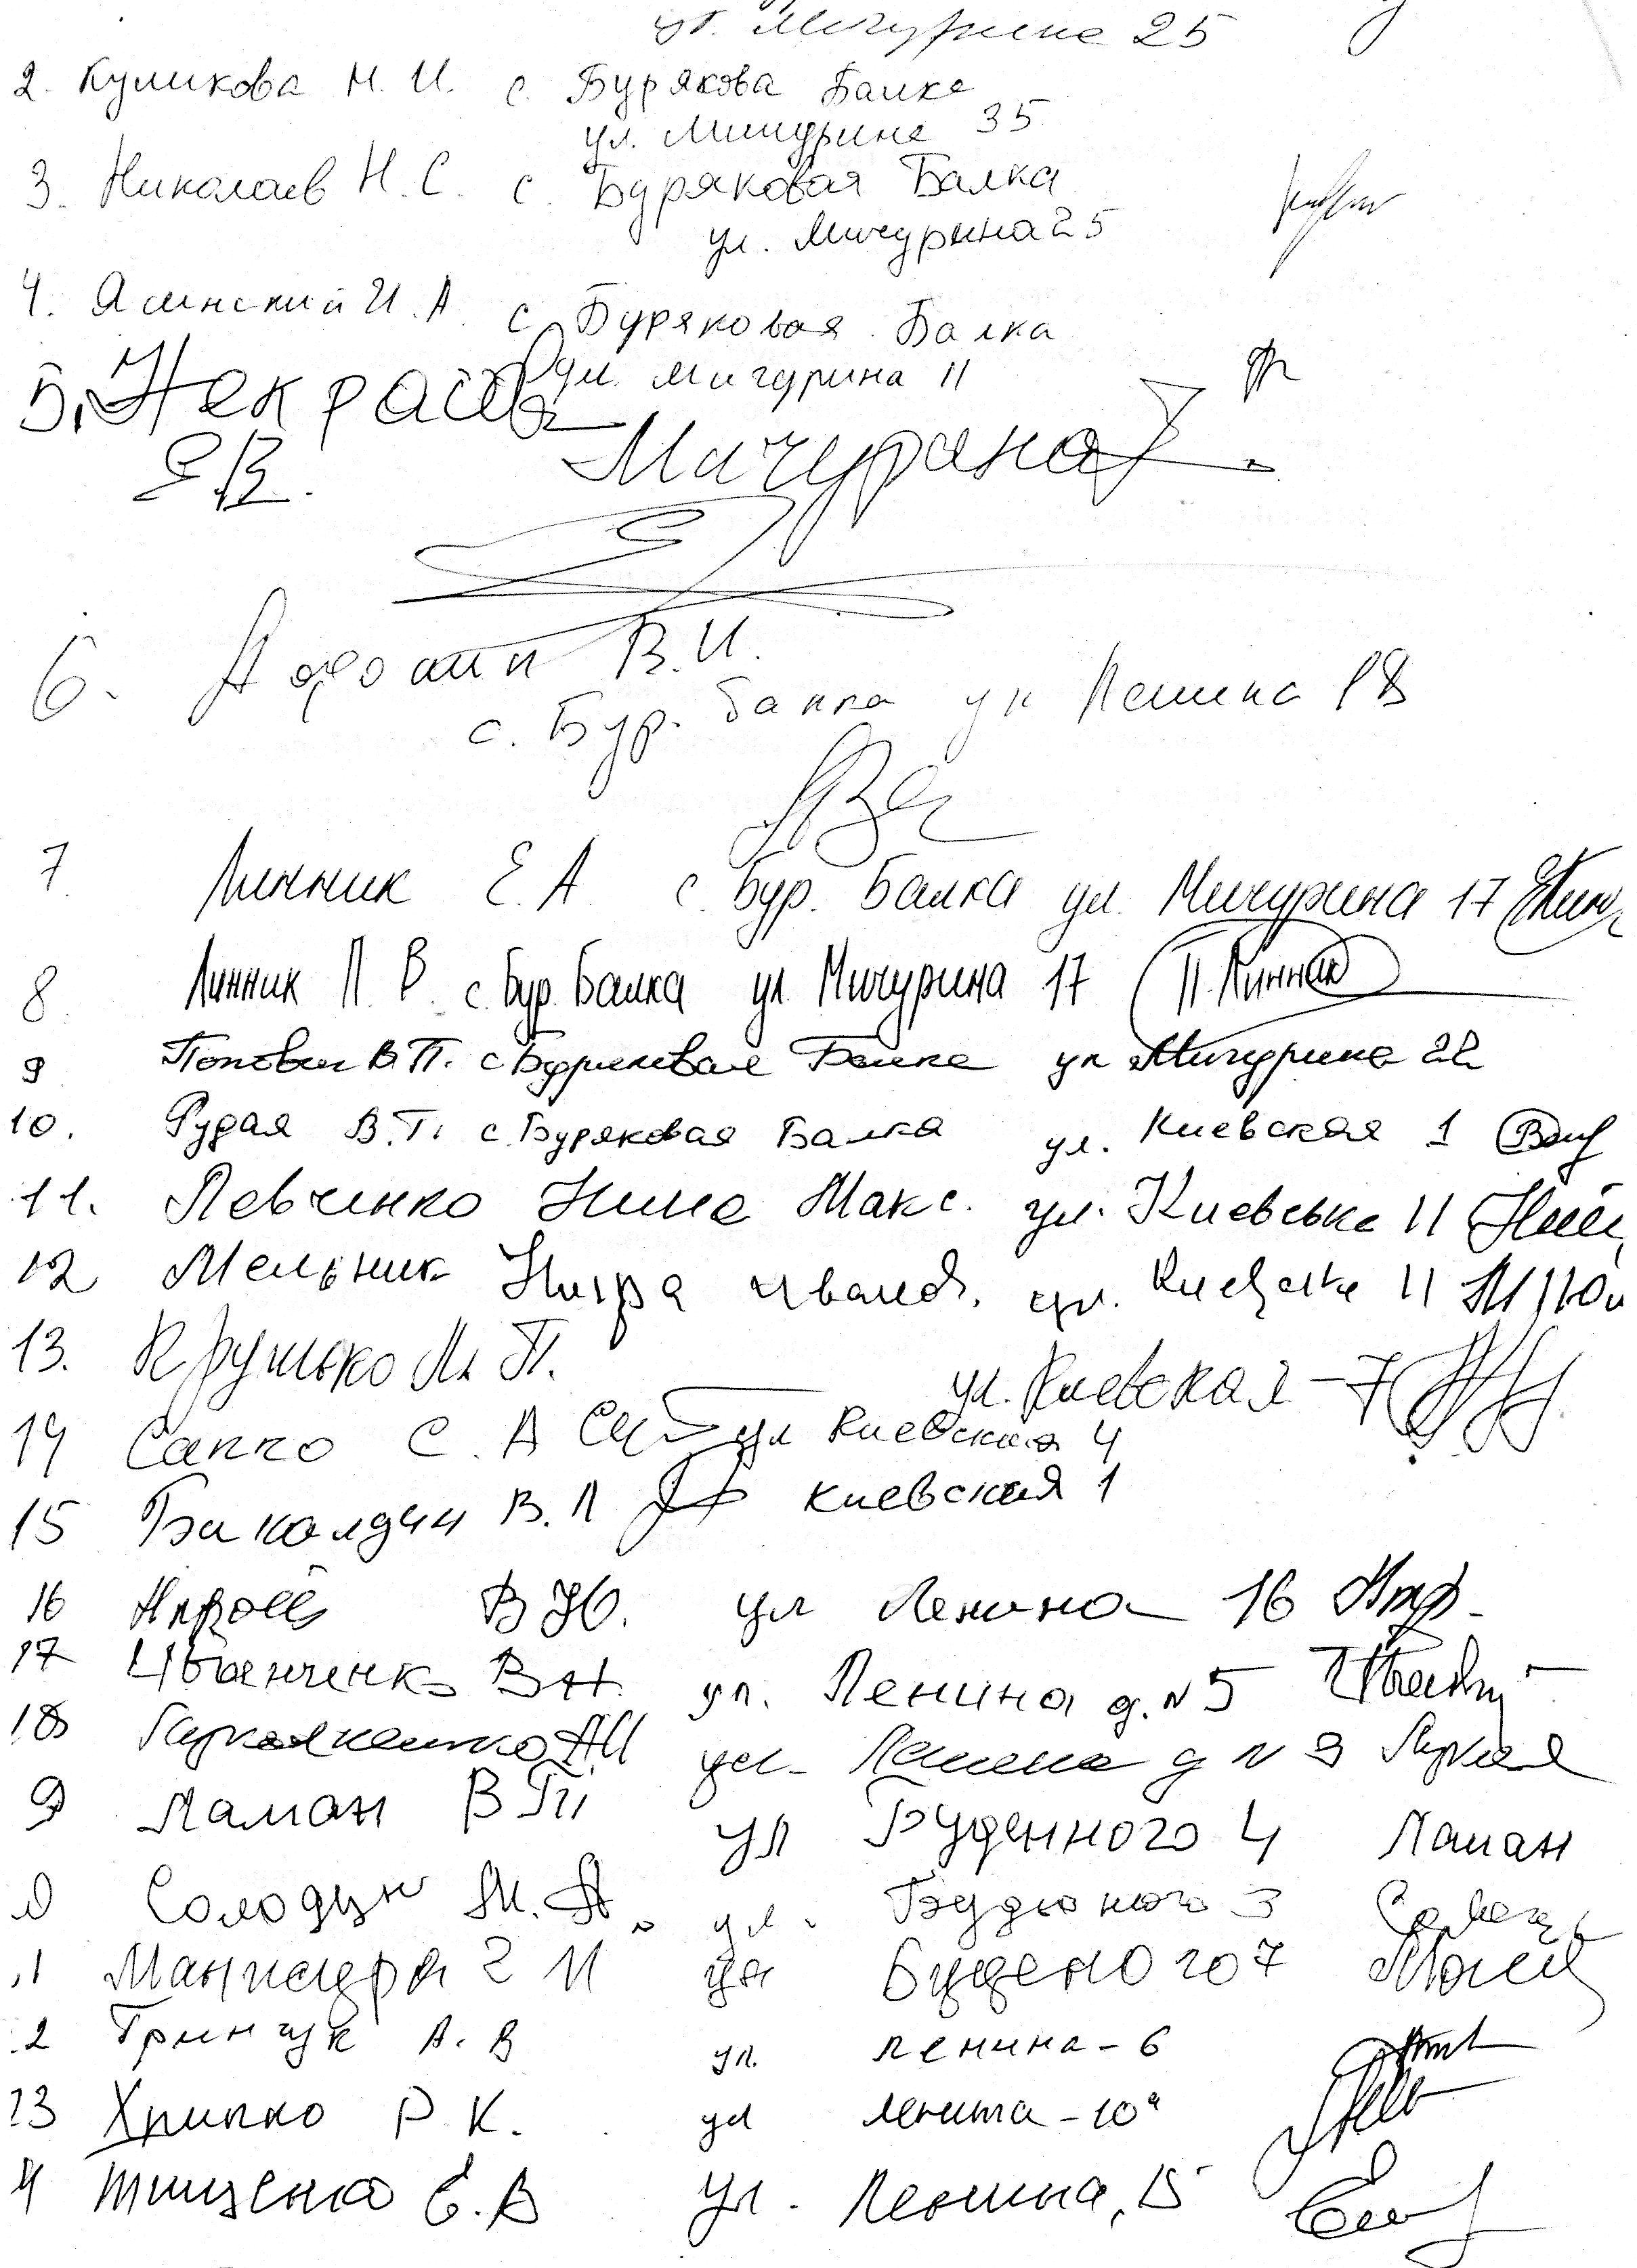 ул. Мичурина 25
2. Куликова Н. И. с. Бурякова Балка
ул. Мичурина 35
3. Николаев Н. С. с. Буряковая Балка
ул. Мичурина 25
4. Ясинский И. А. с. Буряковая Балка
ул. Мичурина 11
5. Некрасова Мичурина 7
Е В.
6. В. И.
с. Бур. Балка ул Ленина 18
7 Линник Е. А. с. Бур. Балка ул. Мичурина 17
8 Линник П. В. с. Бур. Балка ул. Мичурина 17 П. Линник
9 Попович В П. с Буряковая Балка ул Мичурина 22
10. Рудая В. Г. с. Буряковая Балка ул. Киевская 1
11. Левченко Нина Макс. ул. Киевська 11
12 Мельник ул. 11
13. М П. ул. Киевская - 7
14 Сапко С. А ул Киевская 4
15 Бакалдин В. Л Киевская 1
16 В Ю. ул Ленина 16
17 Иванченко В Н. ул. Ленина д. № 5
18 А И ул. Ленина д № 9
9 Ламан В П ул Буденного 4 Ламан
0 Солодун М. А. ул. Будюного 3
1 Г И ул Буденого 7
2 Гринчук А. В ул. Ленина - 6
23 Хрипко Р К. ул Ленина - 10а
4 Тищенко Е. В ул. Ленина, 15